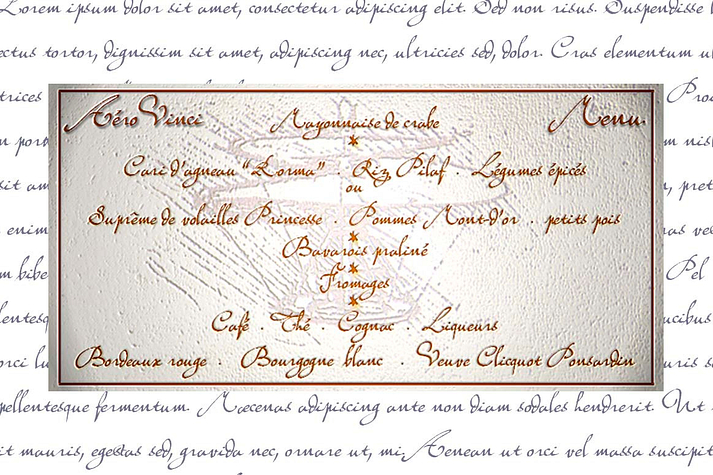 Lorem ipsum dolor sit amet, consectetur adipiscing elit. Sed non risus. Suspendisse l
ectus tortor, dignissim sit amet, adipiscing nec, ultricies sed, dolor. Cras elementum u
trices
Pro
Aéro Vinci
Mayonnaise de crabe
Menu
*
Cari d'agneau "Korma" . Riz Pilaf . Légumes épicés
ou
Suprême de volailles Princesse . Pommes Mont-d'or . petits pois
*
Bavarois praliné
*
Fromages
*
Café . Thé . Cognac . Liqueurs
Bordeaux rouge . Bourgogne blanc . Veuve Clicquot Ponsardin
n porr
sit am
, pret
enim
as ves
m bibe
Pel
lentesq
ucibus
orci lu
uris s
pellentesque fermentum. Maecenas adipiscing ante non diam sodales hendrerit. Ut
it mauris, egestas sed, gravida nec, ornare ut, mi. Aenean ut orci vel massa suscipit